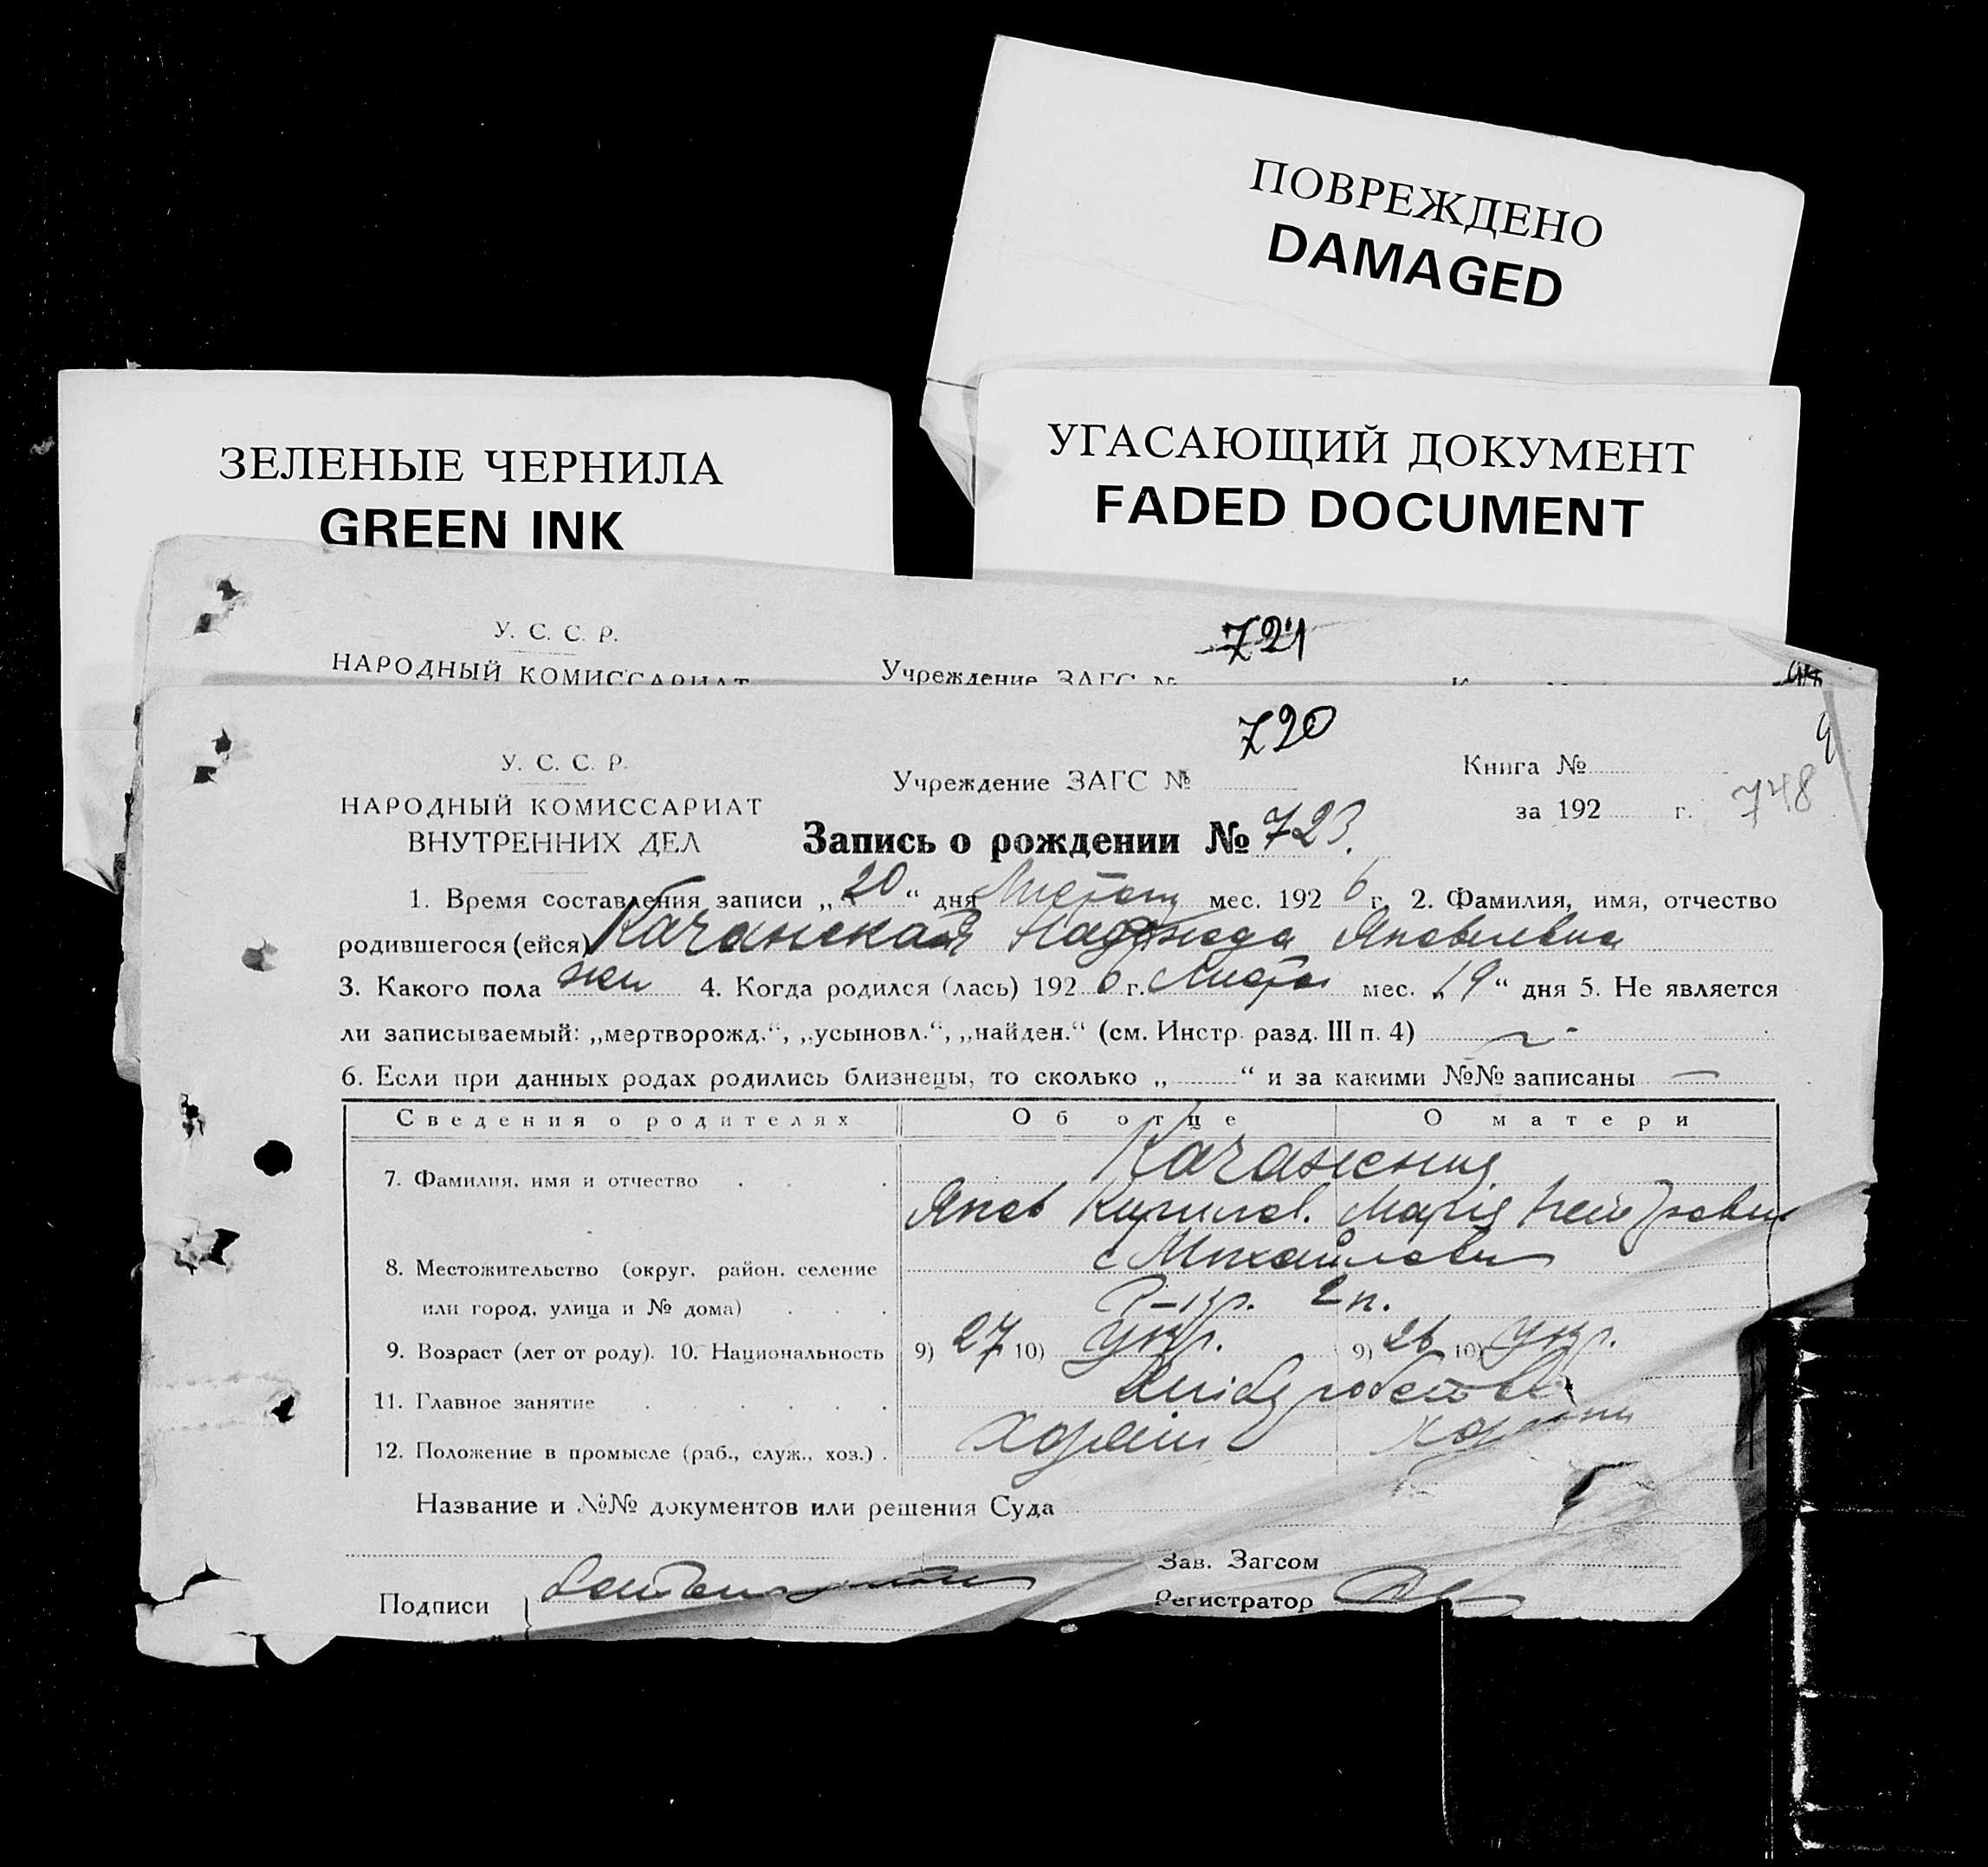 ПОВРЕЖДЕНО
DAMAGED
ЗЕЛЕНЫЕ ЧЕРНИЛА
GREEN INK
УГАСАЮЩИЙ ДОКУМЕНТ
FADED DOCUMENT
У. С. С. Р.
721
НАРОДНЫЙ КОМИССАРИАТ
Учреждение ЗАГС №
720
У. С. С. Р.
Учреждение ЗАГС №
Книга №
НАРОДНЫЙ КОМИССАРИАТ
за 192 г.
748
ВНУТРЕННИХ ДЕЛ
Запись о рождении № 723.
1. Время составления записи „20“ дня мес. 1926 г. 2. Фамилия, имя, отчество
родившегося (ейся) Качанская Надежда Яковлевна
3. Какого пола жен 4. Когда родился (лась) 1926 г. мес. „19“ дня 5. Не является
ли записываемый: „мертворожд.“, „усыновл.“, „найден.“ (см. Инстр. разд. III п. 4)
6. Если при данных родах родились близнецы, то сколько „ “ и за какими №№ записаны —
Сведения о родителях Об отце О матери
7. Фамилия, имя и отчество
Яков Кирилов. Марія
8. Местожительство (округ, район, селение
или город, улица и № дома)
9. Возраст (лет от роду). 10. Национальность 9) 27 10) Укр. 9) 26 10) Укр.
11. Главное занятие
12. Положение в промысле (раб., служ., хоз.)
Название и №№ документов или решения Суда
Зав. Загсом
Подписи
Регистратор